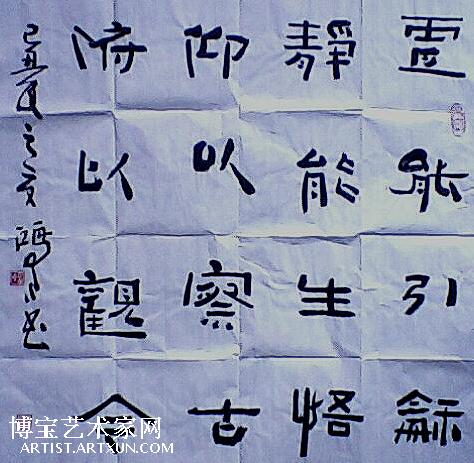 靈能引龢
靜能生悟
仰以察古
俯以觀今
己丑夏之交
博宝艺术家网
ARTIST.ARTXUN.COM